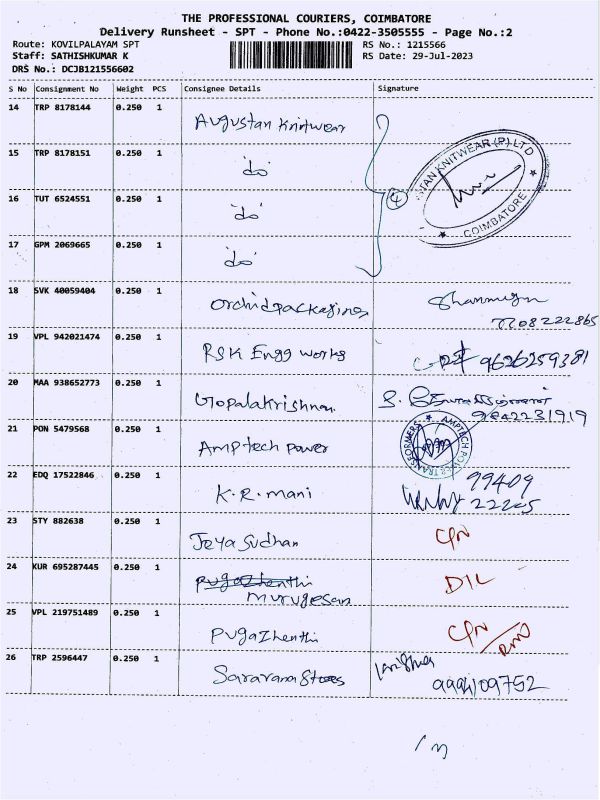 THE PROFESSIONAL COURIERS, COIMBATORE
Delivery Runsheet - SPT - Phone No.:0422-3505555 - Page No.:2
Route: KOVILPALAYAM SPT
RS No.: 1215566
Staff: SATHISHKUMAR K
RS Date: 29-Jul-2023
DRS No.: DCJB121556602
S No Consignment No Weight PCS Consignee Details Signature
14 TRP 8178144 0.250 1 Augustan Knitwear
15 TRP 8178151 0.250 1 "do"
TAN KNITWEAR (P) LTD
COIMBATORE
16 TUT 6524551 0.250 1 "do"
4
17 GPM 2069665 0.250 1 "do"
18 SVK 40059404 0.250 1 Orchidpackagings Shanmugm
7708222865
19 VPL 942021474 0.250 1 RSK Engg works 9626259381
20 MAA 938652773 0.250 1 Gopalakrishnan
9842231919
21 PON 5479568 0.250 1 AMptech power
AMPTECH POWER TRANSFORMERS
22 EDQ 17522846 0.250 1 K.R.mani 99409
22205
23 STY 882638 0.250 1 Jeya Sudhan
24 KUR 695287445 0.250 1 Pugazhenthi D/L
murugesan
25 VPL 219751489 0.250 1 Pugazhenthi
26 TRP 2596447 0.250 1 Saravana Stores
9994109752